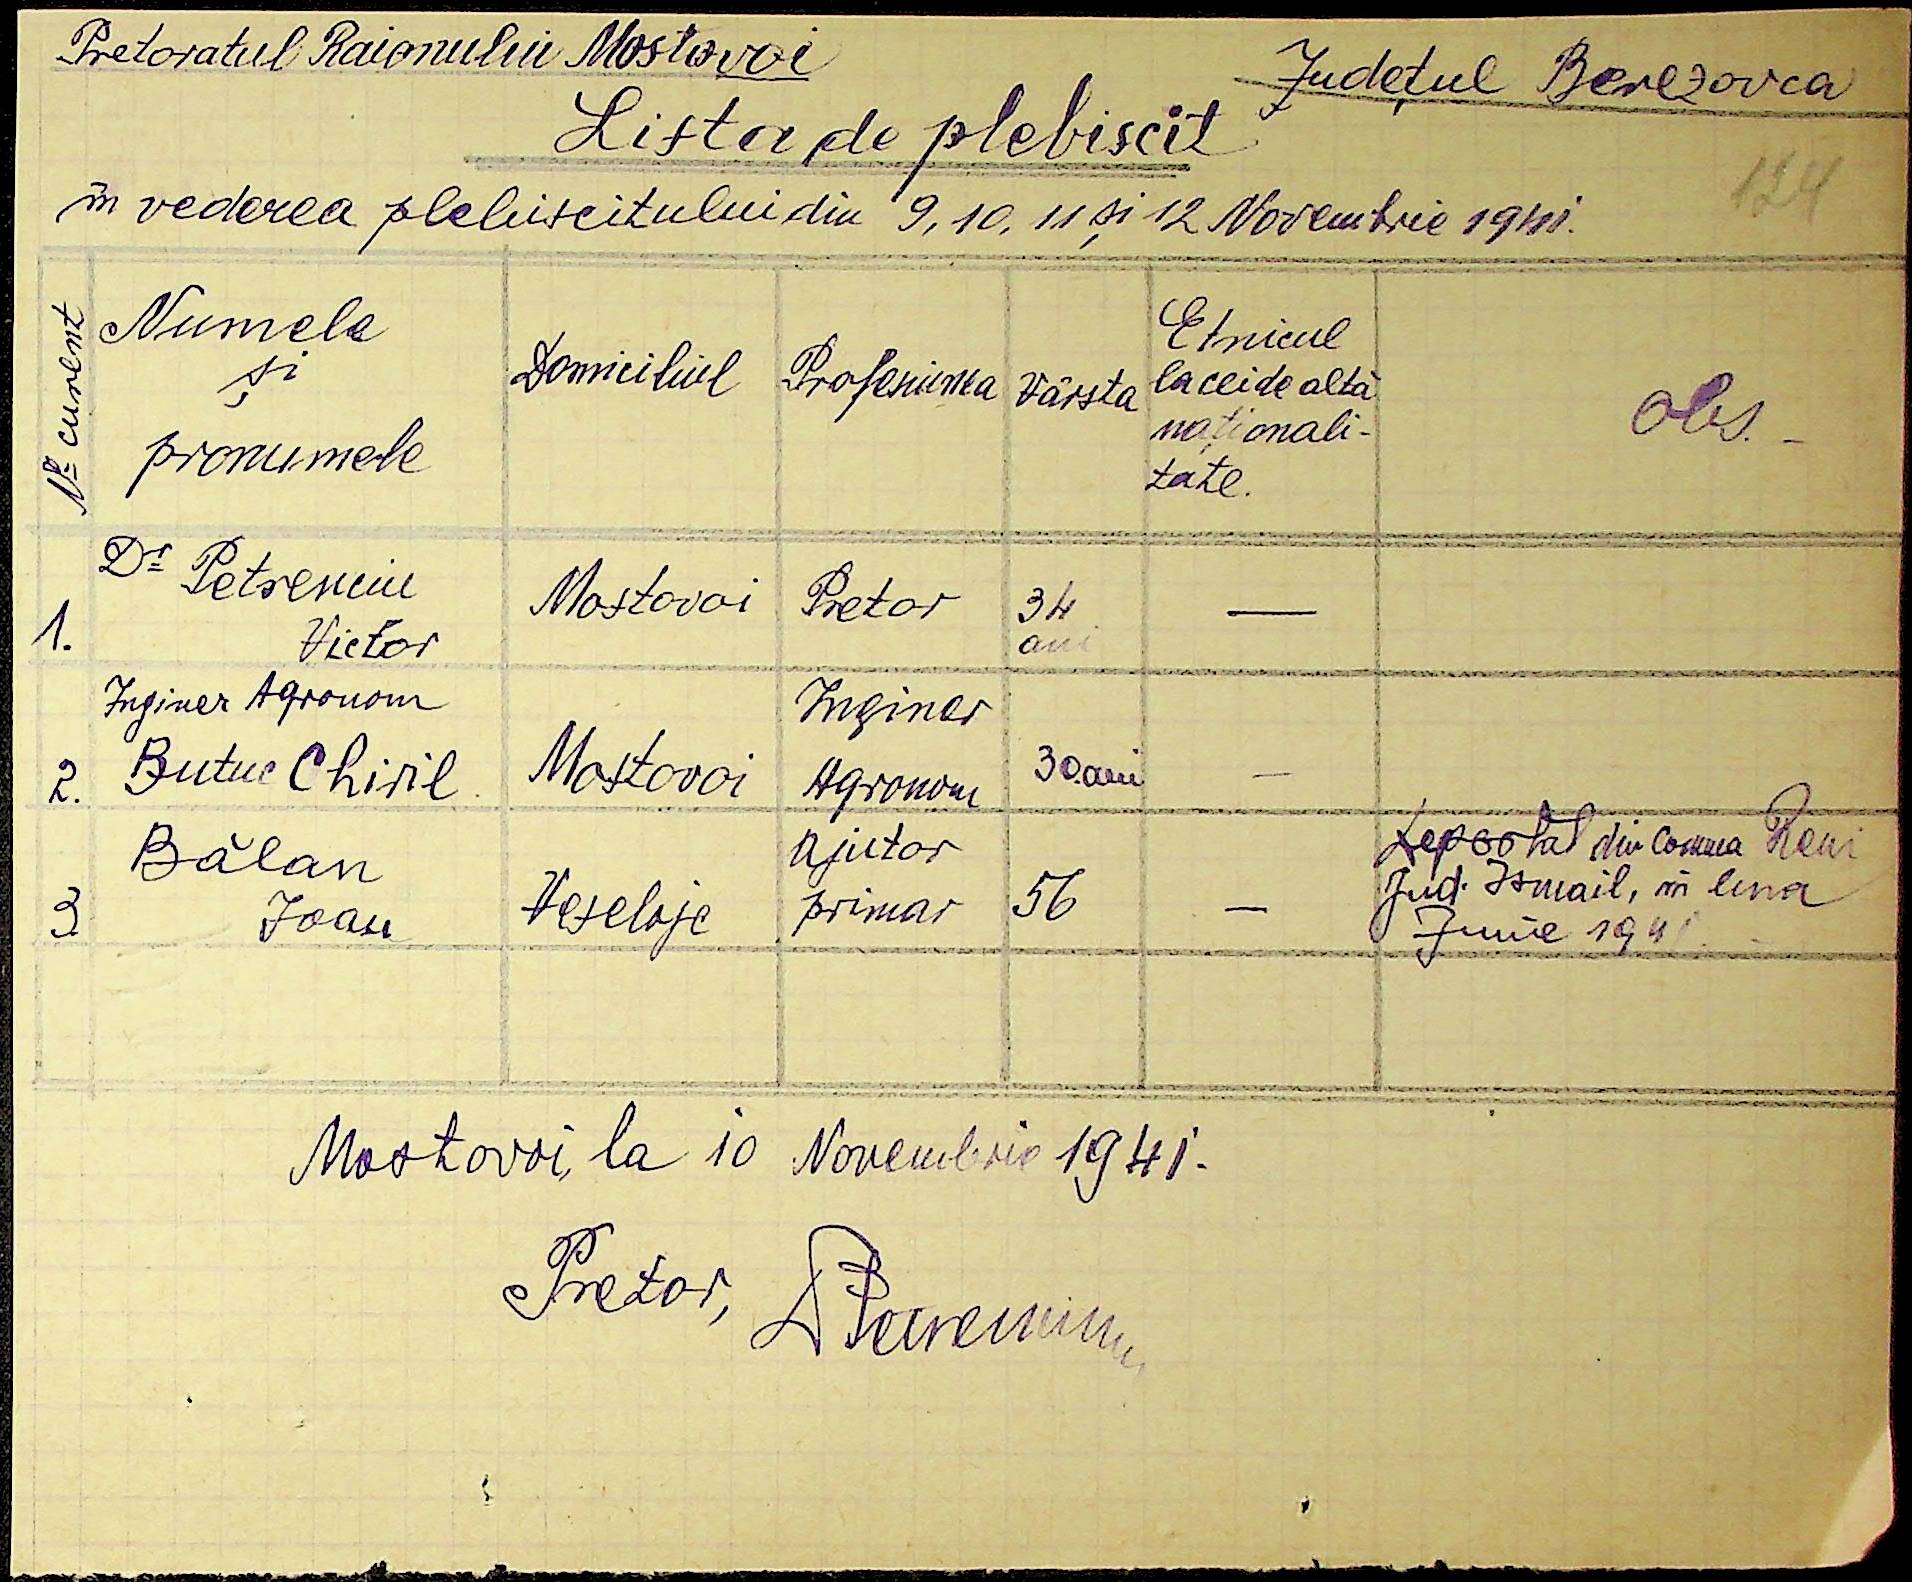 Pretoratul Raionului Mostovoi
Județul Berezovca
Lista de plebiscit
124
în vederea plebiscitului din 9, 10, 11 și 12 Novembrie 1941.
No curent
Numele
și
pronumele
Domiciliul
Profesiunea
Vârsta
Etnicul
la cei de altă
naționali-
tate.
Obs. -
1.
Dr Petrenciu
Victor
Mostovoi
Pretor
34
ani
—
2.
Inginer Agronom
Butuc Chiril
Mostovoi
Inginer
Agronom
30 ani
—
3.
Bălan
Ioan
Veseloje
Ajutor
primar
56
—
din Comuna Reni
Jud. Ismail, în luna
Junie 1941.
Mostovoi, la 10 Novembrie 1941.
Pretor,